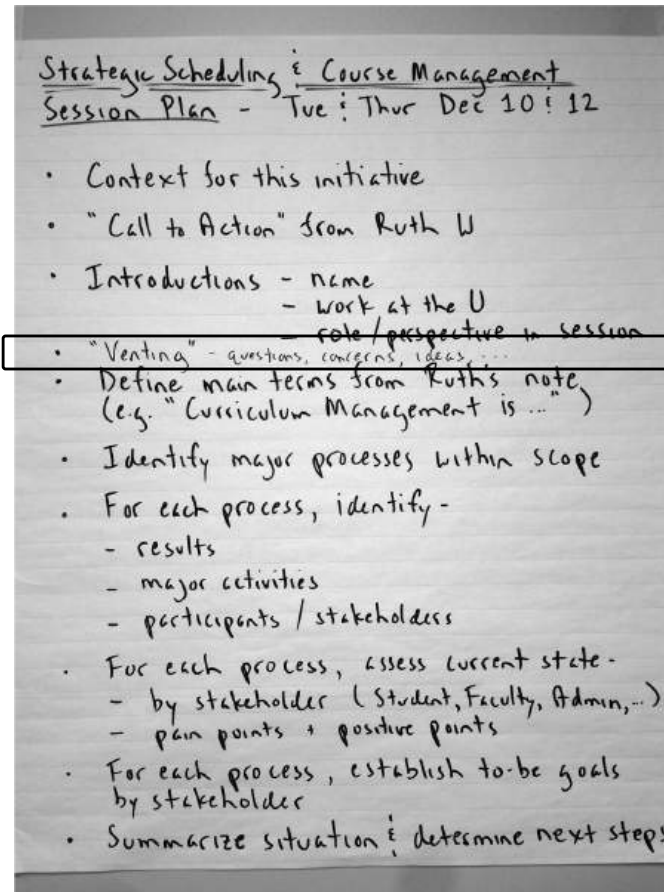 Strategic Scheduling & Course Management
Session Plan - Tue & Thur Dec 10 & 12
• Context for this initiative
• "Call to Action" from Ruth W
• Introductions - name
- work at the U
- role/perspective in session
• "Venting" - questions, concerns, ideas, ...
• Define main terms from Ruth's note
(e.g. "Curriculum Management is ...")
• Identify major processes within scope
• For each process, identify -
- results
- major activities
- participants / stakeholders
• For each process, assess current state -
- by stakeholder (Student, Faculty, Admin, ...)
- pain points + positive points
• For each process, establish to-be goals
by stakeholder
• Summarize situation & determine next steps